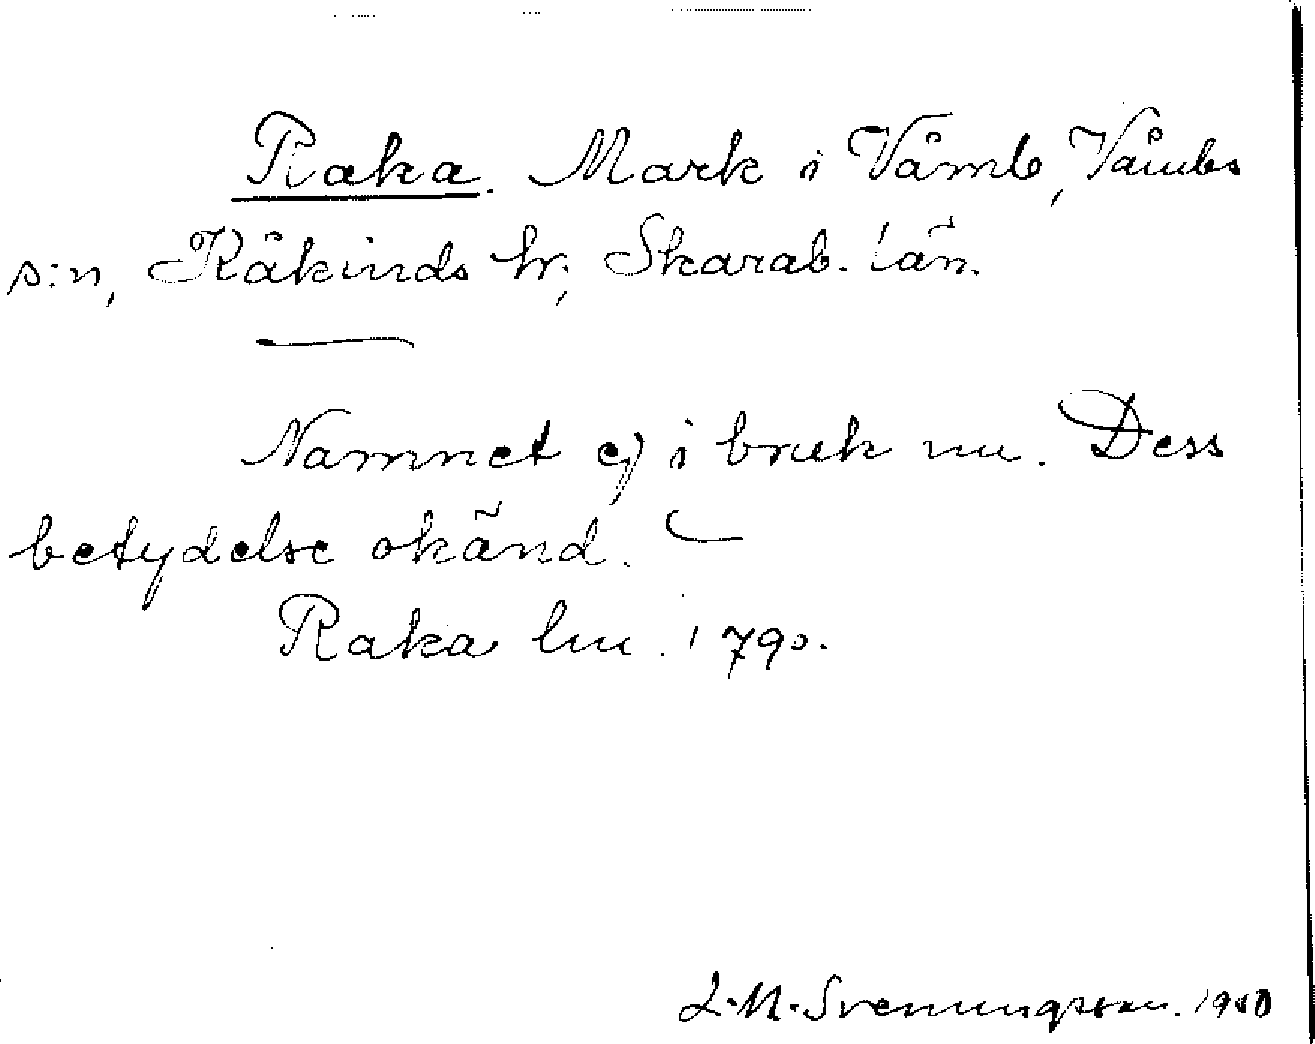 Raka. Mark i Våmb, Våmbs
s:n, Kåkinds hr; Skarab. län.
Namnet ej i bruk nu. Dess
betydelse okänd.
Raka lm. 1790.
J. M. Svenungsson. 1910